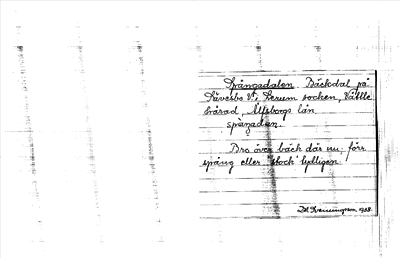 Spångadalen Bäckdal på
Sävesbo V:, Lerum socken, Vättle
härad, Älfsborgs län.
spåŋadan.
Bro över bäck där nu, förr
spång eller "stock" tydligen.
1938